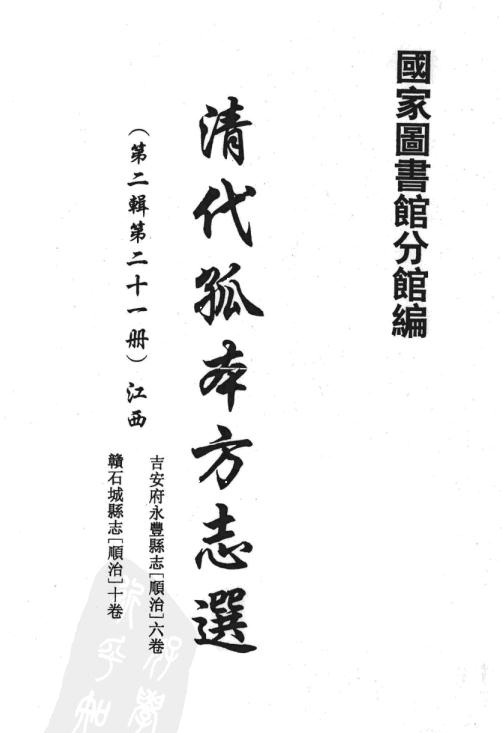 國家圖書館分館編
清代孤本方志選
（第二輯第二十一册）江西
吉安府永豐縣志[順治]六卷
贛石城縣志[順治]十卷